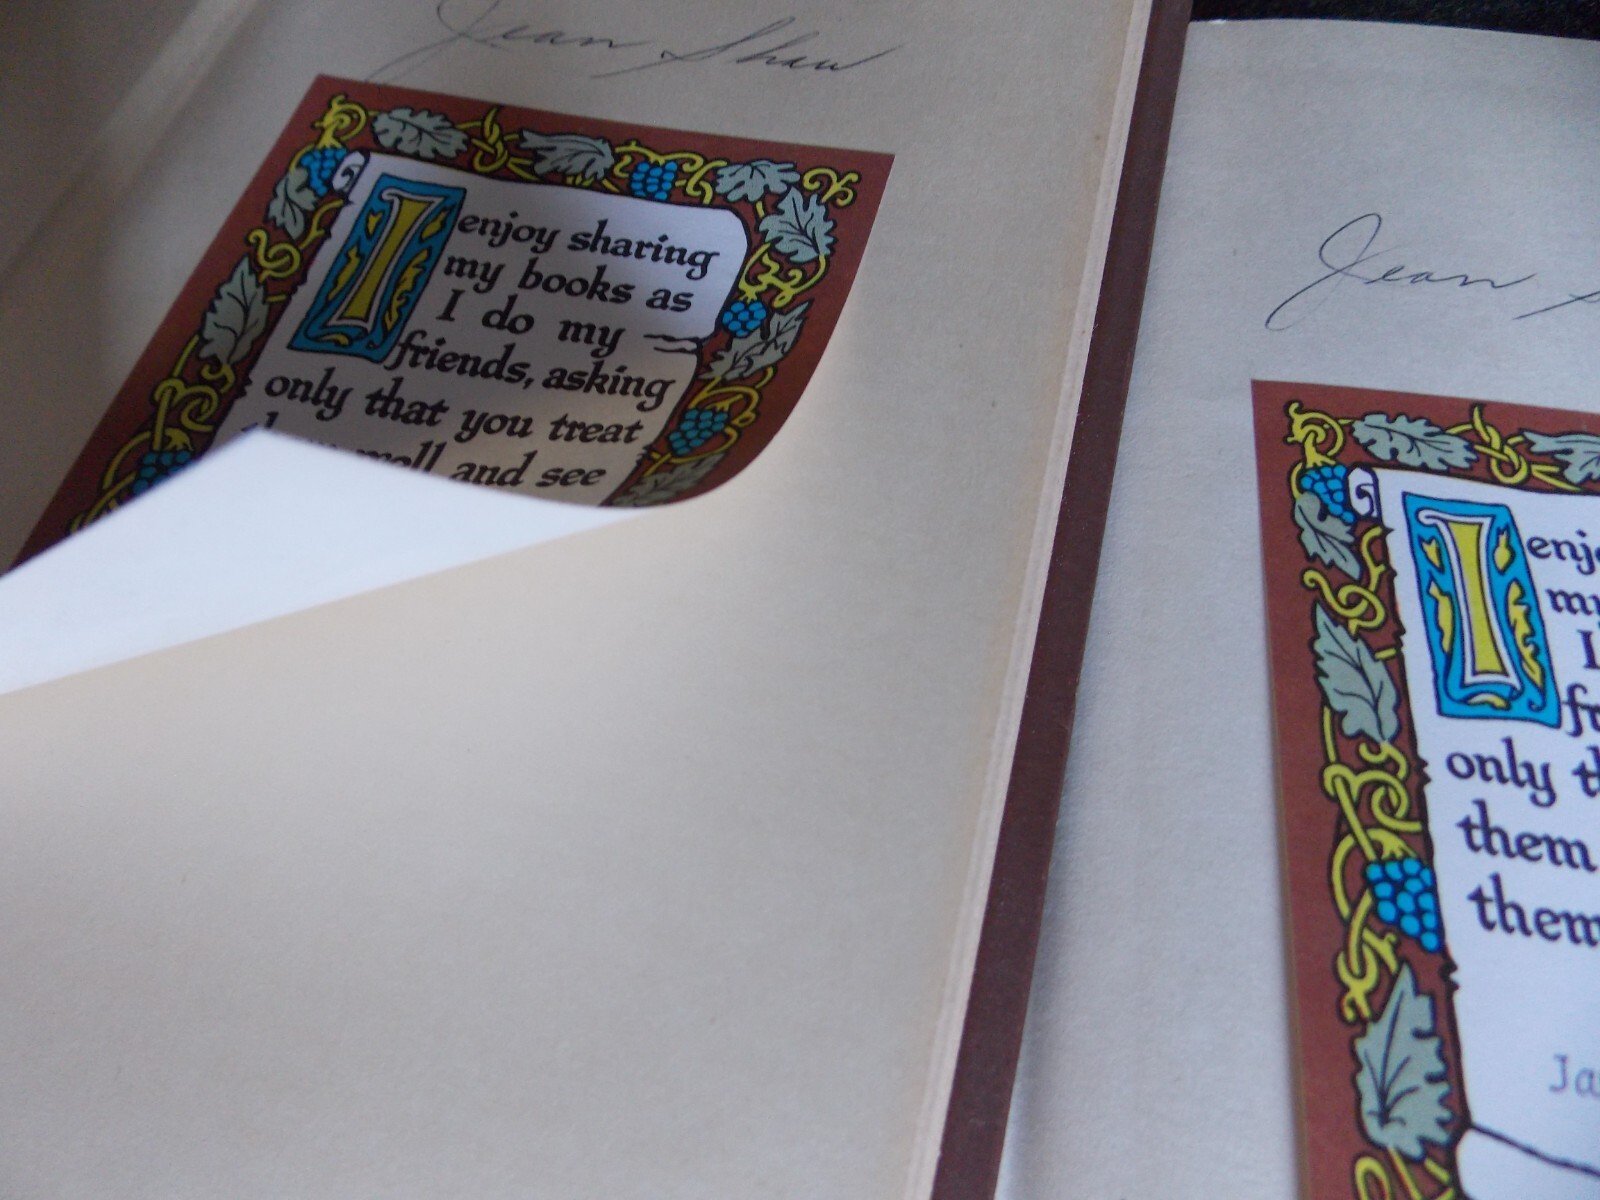 Jean Shaw
I enjoy sharing
my books as
I do my
friends, asking
only that you treat
well and see
Jean
I enj
my
I
fr
only th
them
them
Ja